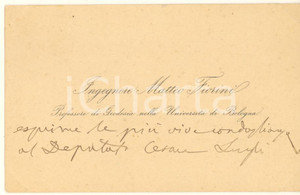 Ingegnere Matteo Fiorini
Professore di Geodesia nella Università di Bologna
esprime le più vive condoglianze
al Deputato Cesare
iCharta